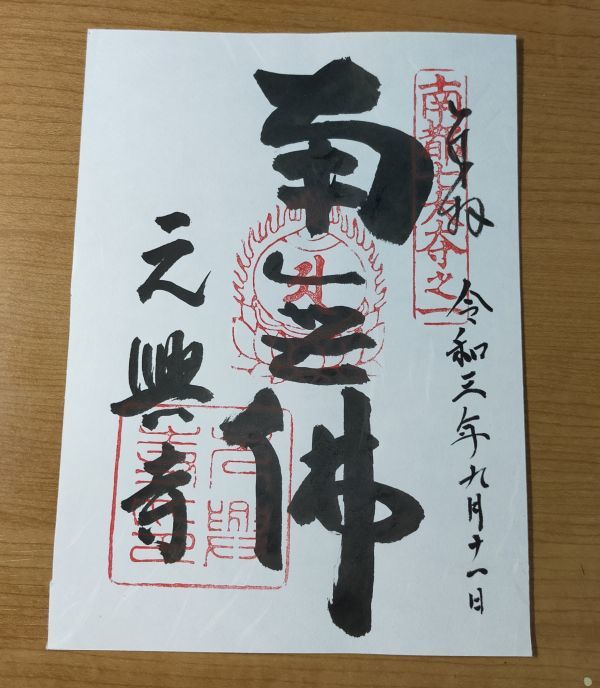 奉拝
南都七大寺之一
令和三年九月十一日
南無佛
元興寺